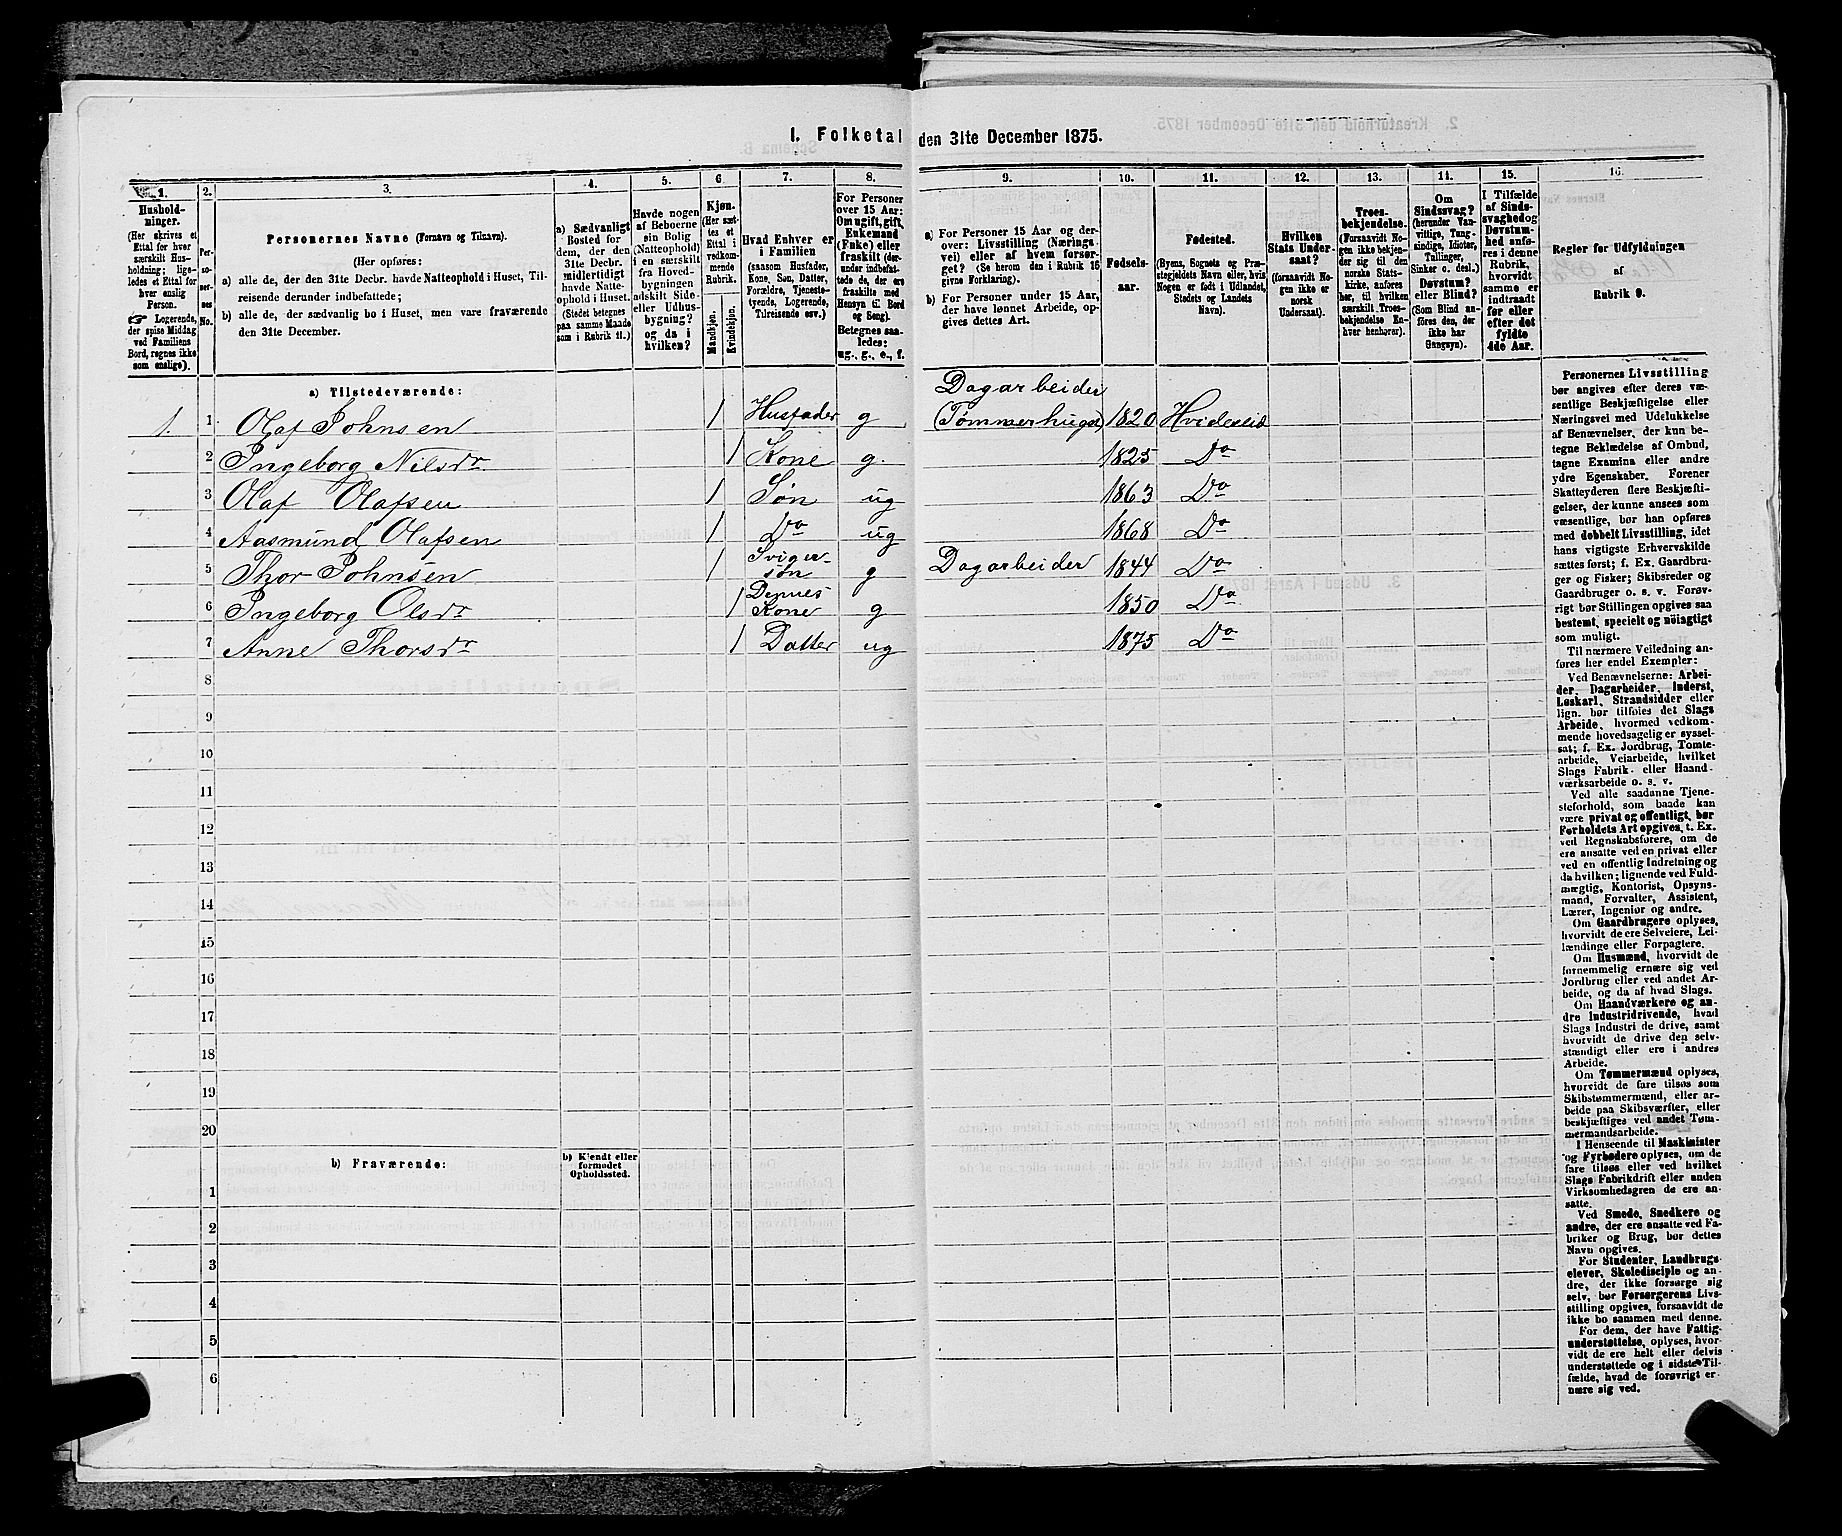 1. Folketal den 31te December 1875.
1. 2. 3. 4. 5. 6. 7. 8. 9. 10. 11. 12. 13. 14. 15. 16.
Hushold-
ninger.
(Her skrives et
Ettal for hver
særskilt Hus-
holdning; lige-
ledes et Ettal for
hver enslig
Person.
☞ Logerende,
der spise Middag
ved Familiens
Bord, regnes ikke
som enslige).
Per-
so-
ner-
nes
No.
Personernes Navne (Fornavn og Tilnavn).
(Her opføres:
a) alle de, der den 31te Decbr. havde Natteophold i Huset, Til-
reisende derunder indbefattede;
b) alle de, der sædvanlig bo i Huset, men vare fraværende
den 31te December.
a) Sædvanligt
Bosted for
dem, der den
31te Decbr.
midlertidigt
havde Natte-
ophold i Huset.
(Stedet betegnes
paa samme Maade
som i Rubrik 11.)
Havde nogen
af Beboerne
sin Bolig
(Natteophold)
i en særskilt
fra Hoved-
bygningen
adskilt Side-
eller Udhus-
bygning?
og da i
hvilken?
Kjøn.
(Her sæt-
tes et
Ettal i
vedkom-
mende
Rubrik.
Mandkjøn.
Kvindekjøn.
Hvad Enhver er
i Familien
(saasom Husfader,
Kone, Søn, Datter,
Forældre, Tjeneste-
tyende, Logerende,
Tilreisende osv.)
For Personer
over 15 Aar:
Om ugift, gift,
Enkemand
(Enke) eller
fraskilt (der-
under indbefat-
tede de, der ere
fraskilte med
Hensyn til Bord
og Seng).
Betegnes saa-
ledes:
ug., g., e., f.
a) For Personer 15 Aar og der-
over: Livsstilling (Nærings-
vei) eller af hvem forsør-
get? (Se herom den i Rubrik 16
givne Forklaring).
b) For Personer under 15 Aar,
der have lønnet Arbeide, op-
gives dettes Art.
Fødsels-
aar.
Fødested.
(Byens, Sognets og Præ-
stegjeldets Navn eller, hvis
Nogen er født i Udlandet,
Stedets og Landets
Navn).
Hvilken
Stats Under-
saat?
(forsaavidt No-
gen ikke er
norsk
Undersaat).
Troes-
bekjendelse.
(Forsaavidt No-
gen ikke bekjen-
der sig til den
norske Stats-
kirke, anføres
her, til hvilken
særskilt Troes-
bekjendelse En-
hver henhører).
Om
Sindssvag?
(herunder Van-
vittige, Tung-
sindige, Idioter,
Tullinger,
Sinker o. desl.)
Døvstum?
eller Blind?
(Som Blind an-
føres den, der
ikke har
Gangsyn).
I Tilfælde
af Sinds-
svaghed og
Døvstum-
hed anfø-
res i denne
Rubrik,
hvorvidt
samme er
indtraadt
før eller
efter det
fyldte
4de Aar.
Regler for Udfyldningen
af
Rubrik 9.
a) Tilstedeværende:
1. 1 Olaf Johnsen 1 Husfader g Dagarbeider (Tømmerhugst) 1820 Hvideseid
2 Ingeborg Nilsdr 1 Kone g. 1825 Do
3 Olaf Olafsen 1 Søn ug 1863 Do
4 Aasmund Olafsen 1 Do ug 1868 Do
5 Thor Johnsen 1 Svigersøn g Dagarbeider 1844 Do
6 Ingeborg Olsdr 1 Dennes Kone g 1850 Do
7 Anne Thorsdr 1 Datter ug 1875 Do
8
9
10
11
12
13
14
15
16
17
18
19
20
b) Fraværende:
b) Kjendt eller
formodet
Opholdssted.
1
2
3
4
5
6
Personernes Livsstilling
bør angives efter deres væ-
sentlige Beskjæftigelse eller
Næringsvei med Udelukkelse
af Benævnelser, der kun be-
tegne Beklædelse af Ombud,
tagne Examina eller andre
ydre Egenskaber. Forener
Skatteyderen flere Beskjæfti-
gelser, der kunne ansees som
væsentlige, bør han opføres
med dobbelt Livsstilling, idet
hans vigtigste Erhvervskilde
sættes først; f. Ex. Gaardbru-
ger og Fisker; Skibsreder og
Gaardbruger o. s. v. Forøv-
rigt bør Stillingen opgives saa
bestemt, specielt og nöiagtigt
som muligt.
Til nærmere Veiledning an-
føres her endel Exempler:
Ved Benævnelserne: Arbei-
der, Dagarbeider, Inderst,
Løskarl, Strandsidder eller
lign. bør tilføies det Slags
Arbeide, hvormed vedkom-
mende hovedsagelig er syssel-
sat; f. Ex. Jordbrug, Tomte-
arbeide, Veiarbeide, hvilket
Slags Fabrik- eller Haand-
værksarbeide o. s. v.
Ved alle saadanne Tjene-
steforhold, som baade kan
være privat og offentligt, bør
Forholdets Art opgives, t. Ex.
ved Regnskabsførere, om de
ere ansatte ved en privat eller
ved en offentlig Indretning og
da hvilken; lignende ved Fuld-
mægtig, Kontorist, Opsyns-
mand, Forvalter, Assistent,
Lærer, Ingeniør og andre.
Om Gaardbrugere oplyses,
hvorvidt de ere Selveiere, Lei-
lændinge eller Forpagtere.
Om Husmænd, hvorvidt de
fornemmelig ernære sig ved
Jordbrug eller ved andet Ar-
beide, og da af hvad Slags.
Om Haandværkere og an-
dre Industridrivende, hvad
Slags Industri de drive, samt
hvorvidt de drive den selv-
stændigt eller ere i andres
Arbeide.
Om Tømmermænd oplyses,
hvorvidt de fare tilsøs som
Skibstømmermænd, eller ar-
beide paa Skibsværfter, eller
beskjæftiges ved andet Tøm-
mermandsarbeide.
I Henseende til Maskinister
og Fyrbødere oplyses, om de
fare tilsøs eller ved hvilket
Slags Fabrikdrift eller anden
Virksomhedsgren de ere an-
satte.
Ved Smede, Snedkere og
andre, der ere ansatte ved Fa-
briker og Brug, bør dettes
Navn opgives.
For Studenter, Landbrugs-
elever, Skoledisciple og an-
dre, der ikke forsørge sig
selv, bør Forsørgerens Livs-
stilling opgives, forsaavidt de
ikke bo sammen med denne.
For dem, der have Fattig-
understøttelse, oplyses, hvor-
vidt de ere helt eller delvis
understøttede og i sidste Til-
fælde, hvad de forøvrigt er-
nære sig ved.